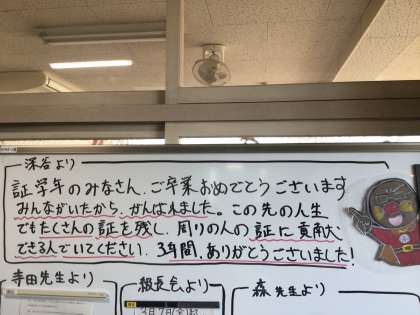 深谷より
証学年のみなさん、ご卒業おめでとうございます
みんながいたから、がんばれました。この先の人生
でもたくさんの証を残し、周りの人の証に貢献
できる人でいてください。3年間、ありがとうございました!
寺田先生より
級長会より
森先生より
3月7日(金)